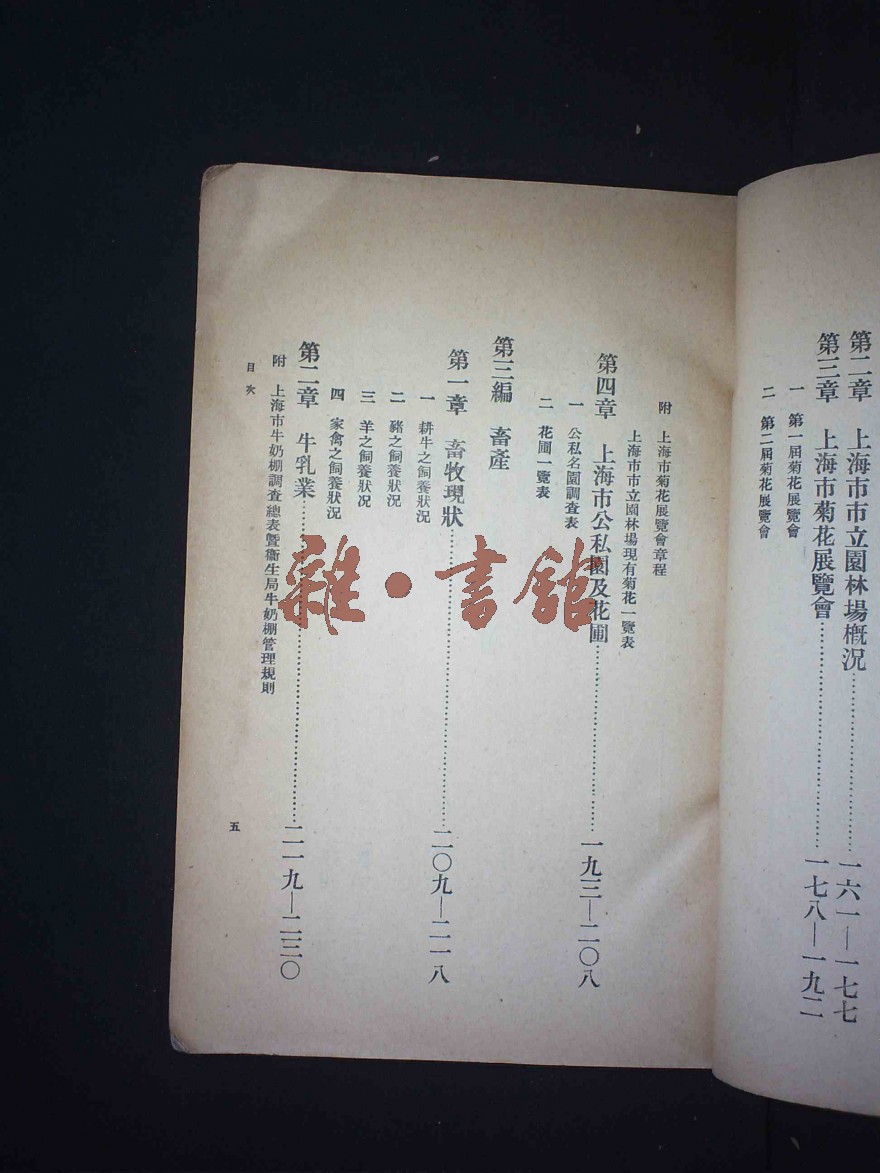 第二章 上海市市立園林場概況 一六一—一七七
第三章 上海市菊花展覽會 一七八—一九二
一 第一屆菊花展覽會
二 第二屆菊花展覽會
附 上海市菊花展覽會章程
上海市市立園林場現有菊花一覽表
第四章 上海市公私園及花圃 一九三—二〇八
一 公私名園調查表
二 花圃一覽表
第三編 畜產
第一章 畜牧現狀 二〇九—二一八
一 耕牛之飼養狀況
二 豬之飼養狀況
三 羊之飼養狀况
四 家禽之飼養狀況
第二章 牛乳業 二一九—二三〇
附 上海市牛奶棚調查總表暨衞生局牛奶棚管理規則
目次
五
雜·書館